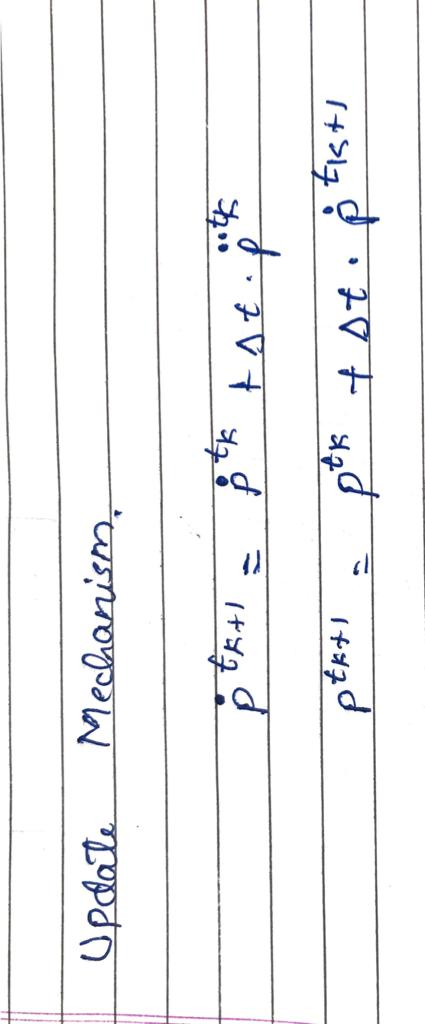 Update Mechanism.
ṗ^{t_{k+1}} = ṗ^{t_k} + Δt · p̈^{t_k}
p^{t_{k+1}} = p^{t_k} + Δt · ṗ^{t_{k+1}}